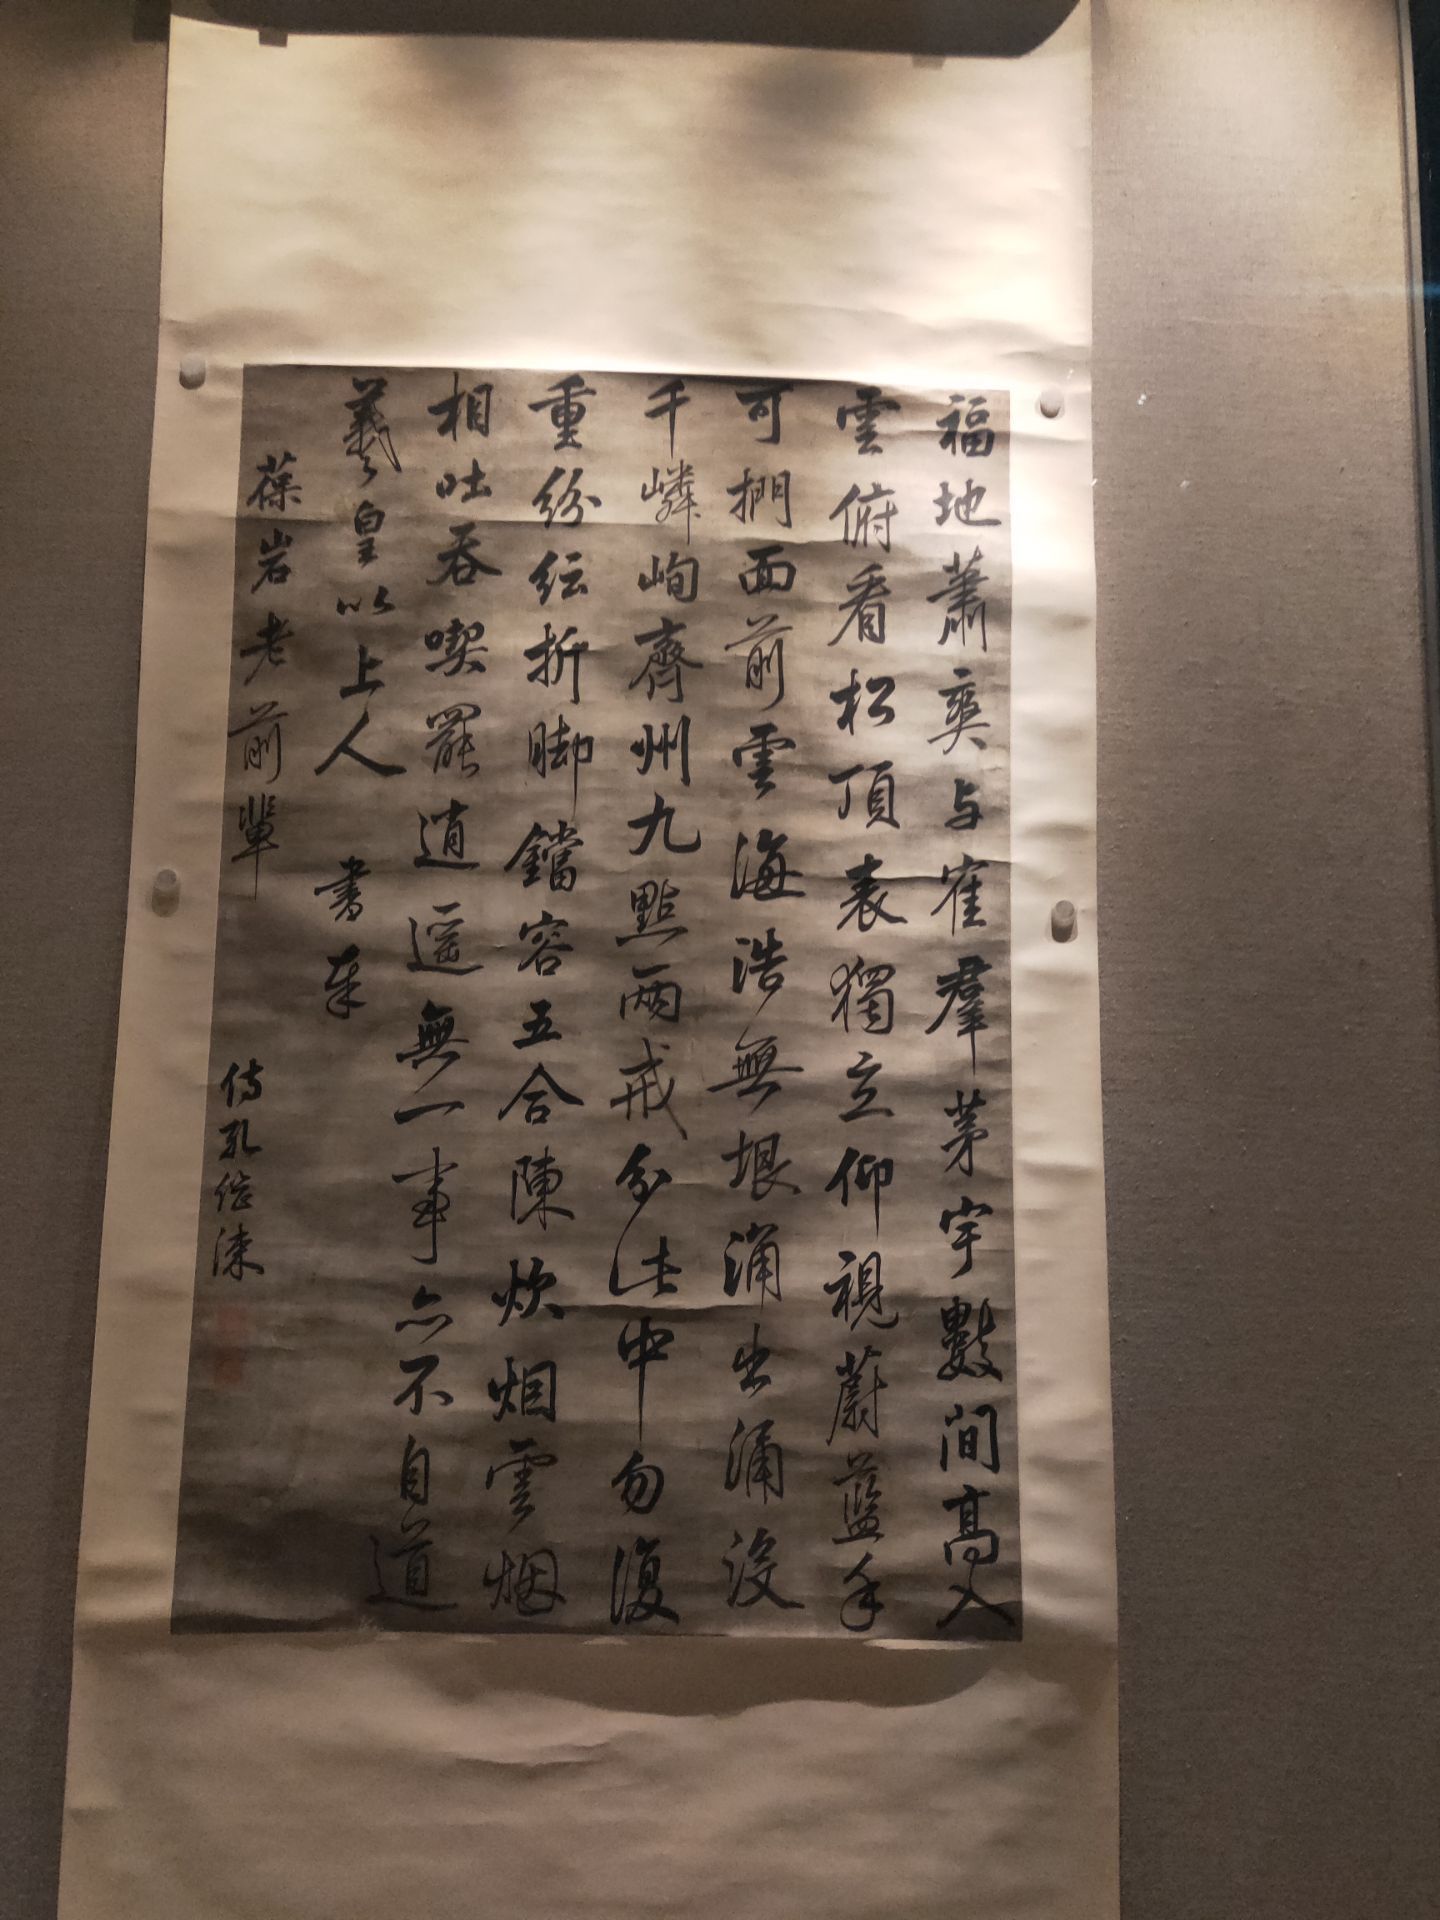 福地蕭爽与崔羣茅宇數間高入
雲俯看松頂表獨立仰視蔚藍手
可捫面前雲海浩無垠涌出涌没
千嶙峋齊州九點兩戒分此中勿復
重紛紜折脚鐺容五合陳炊烟雲烟
相吐吞喫罷逍遥無一事亦不自道
羲皇以上人 書奉
葆岩老前輩
侍孔繼涑